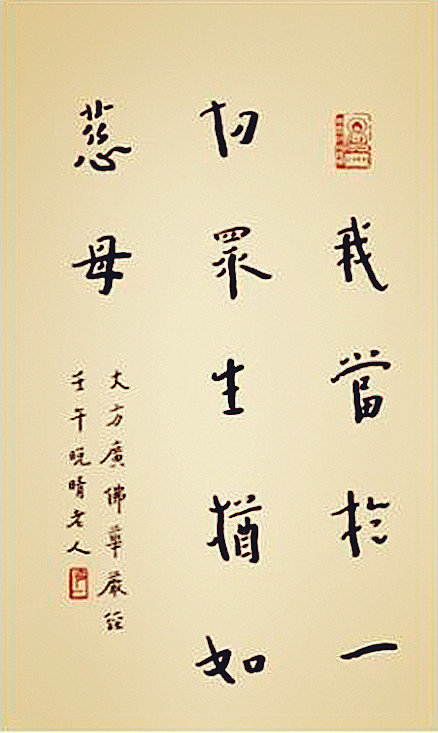 我當於一
切眾生猶如
慈母
大方廣佛華嚴經
壬午晚晴老人